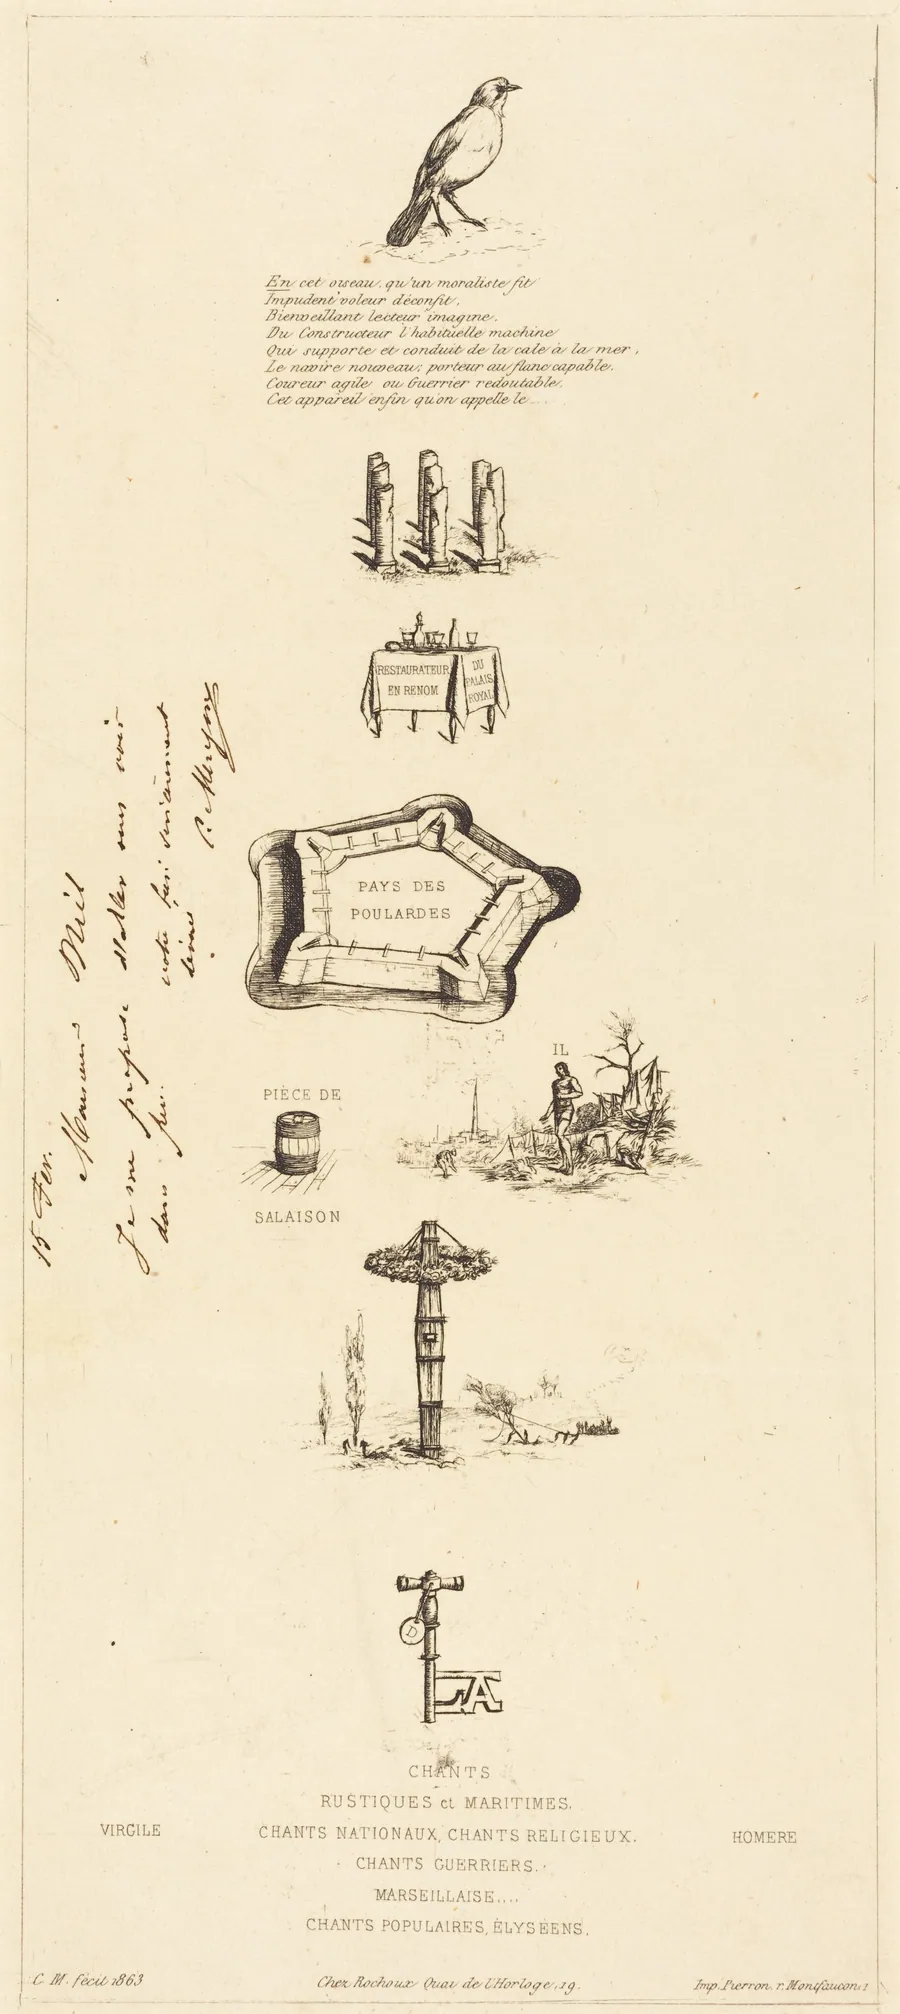 En cet oiseau, qu'un moraliste fit
Impudent voleur déconfit,
Bienveillant lecteur imagine,
Du Constructeur l'habituelle machine
Qui supporte et conduit de la cale à la mer,
Le navire nouveau; porteur au flanc capable,
Coureur agile ou Guerrier redoutable,
Cet appareil enfin qu'on appelle le ....
RESTAURATEUR
EN RENOM
DU
PALAIS
ROYAL
PAYS DES
POULARDES
15 Fer.
Monsieur Niel
Je me propose d'aller vous voir
dans peu.
votre
dévoué
C. Meryon
IL
PIÈCE DE
SALAISON
D
LA
CHANTS
RUSTIQUES et MARITIMES.
VIRGILE
CHANTS NATIONAUX, CHANTS RELIGIEUX.
HOMERE
CHANTS GUERRIERS.
MARSEILLAISE....
CHANTS POPULAIRES, ÉLYSÉENS.
C. M. fecit 1863
Chez Rochoux Quai de l'Horloge, 19.
Imp. Pierron, r. Montfaucon, 1